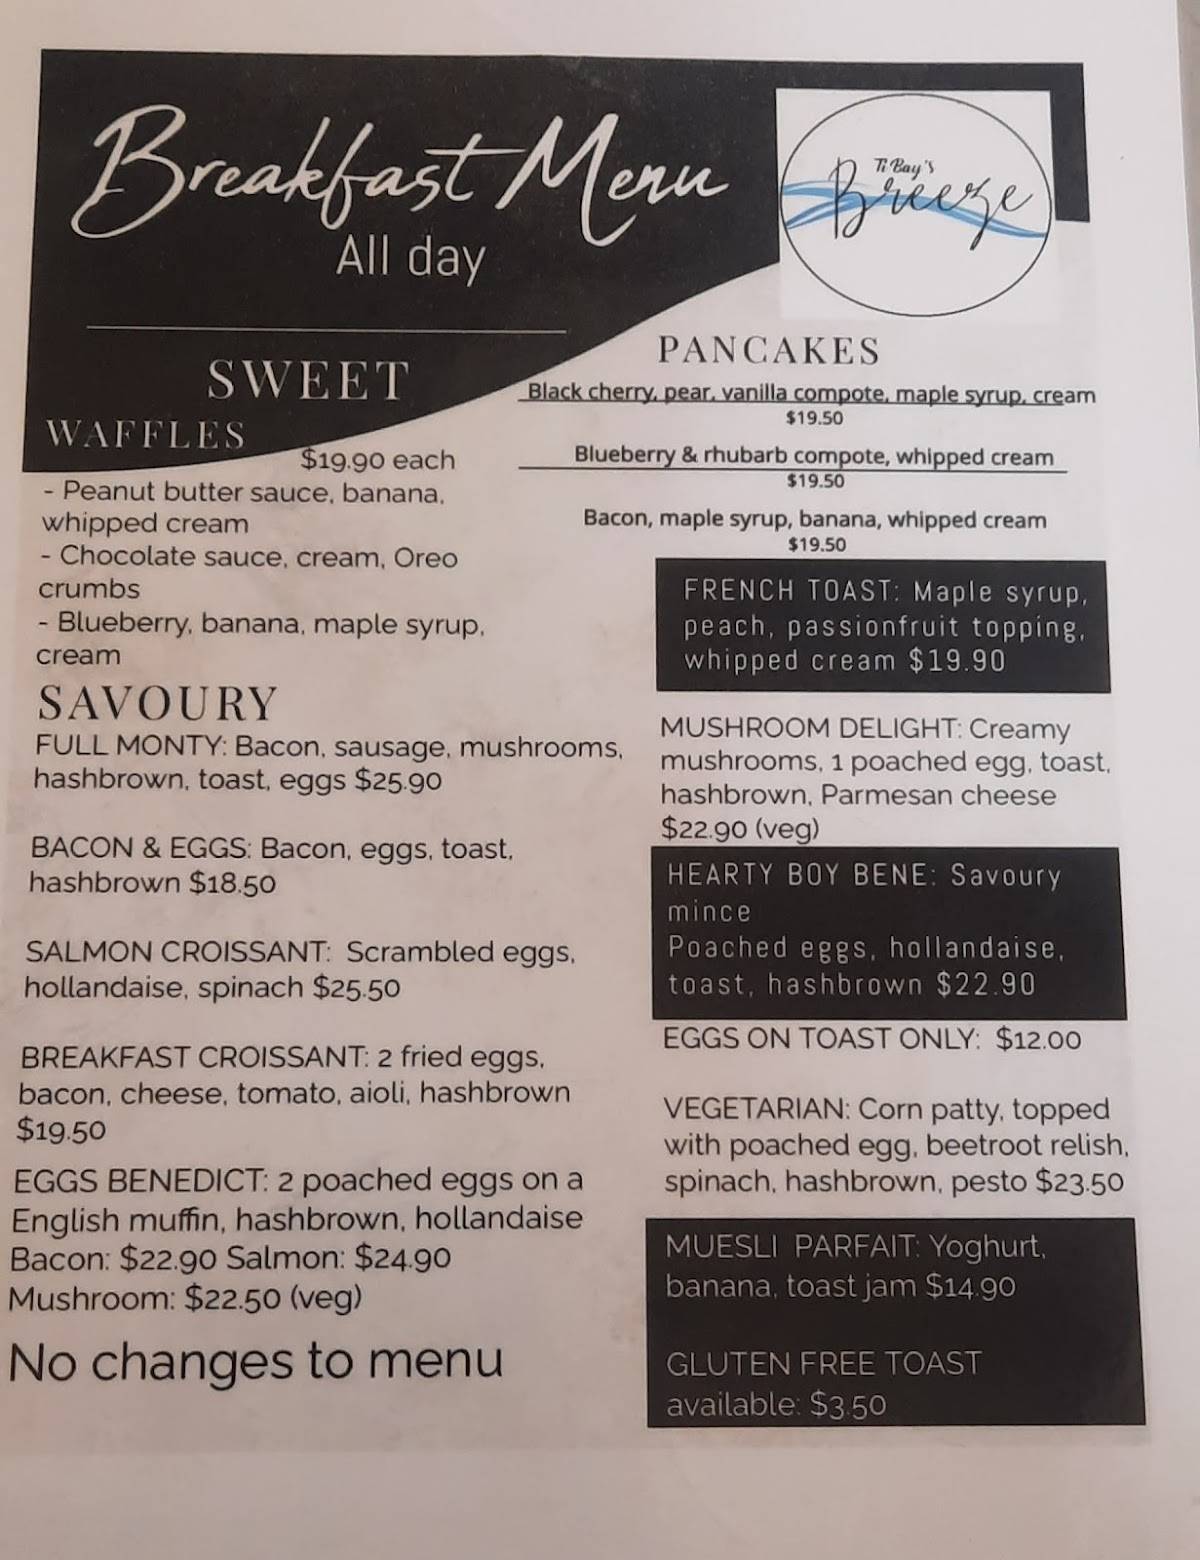 Breakfast Menu
All day
Ti Bay's
Breeze
SWEET
WAFFLES
$19.90 each
- Peanut butter sauce, banana,
whipped cream
- Chocolate sauce, cream, Oreo
crumbs
- Blueberry, banana, maple syrup,
cream
PANCAKES
Black cherry, pear, vanilla compote, maple syrup, cream
$19.50
Blueberry & rhubarb compote, whipped cream
$19.50
Bacon, maple syrup, banana, whipped cream
$19.50
FRENCH TOAST: Maple syrup,
peach, passionfruit topping,
whipped cream $19.90
SAVOURY
FULL MONTY: Bacon, sausage, mushrooms,
hashbrown, toast, eggs $25.90
BACON & EGGS: Bacon, eggs, toast,
hashbrown $18.50
SALMON CROISSANT: Scrambled eggs,
hollandaise, spinach $25.50
BREAKFAST CROISSANT: 2 fried eggs,
bacon, cheese, tomato, aioli, hashbrown
$19.50
EGGS BENEDICT: 2 poached eggs on a
English muffin, hashbrown, hollandaise
Bacon: $22.90 Salmon: $24.90
Mushroom: $22.50 (veg)
No changes to menu
MUSHROOM DELIGHT: Creamy
mushrooms, 1 poached egg, toast,
hashbrown, Parmesan cheese
$22.90 (veg)
HEARTY BOY BENE: Savoury
mince
Poached eggs, hollandaise,
toast, hashbrown $22.90
EGGS ON TOAST ONLY: $12.00
VEGETARIAN: Corn patty, topped
with poached egg, beetroot relish,
spinach, hashbrown, pesto $23.50
MUESLI PARFAIT: Yoghurt,
banana, toast jam $14.90
GLUTEN FREE TOAST
available: $3.50